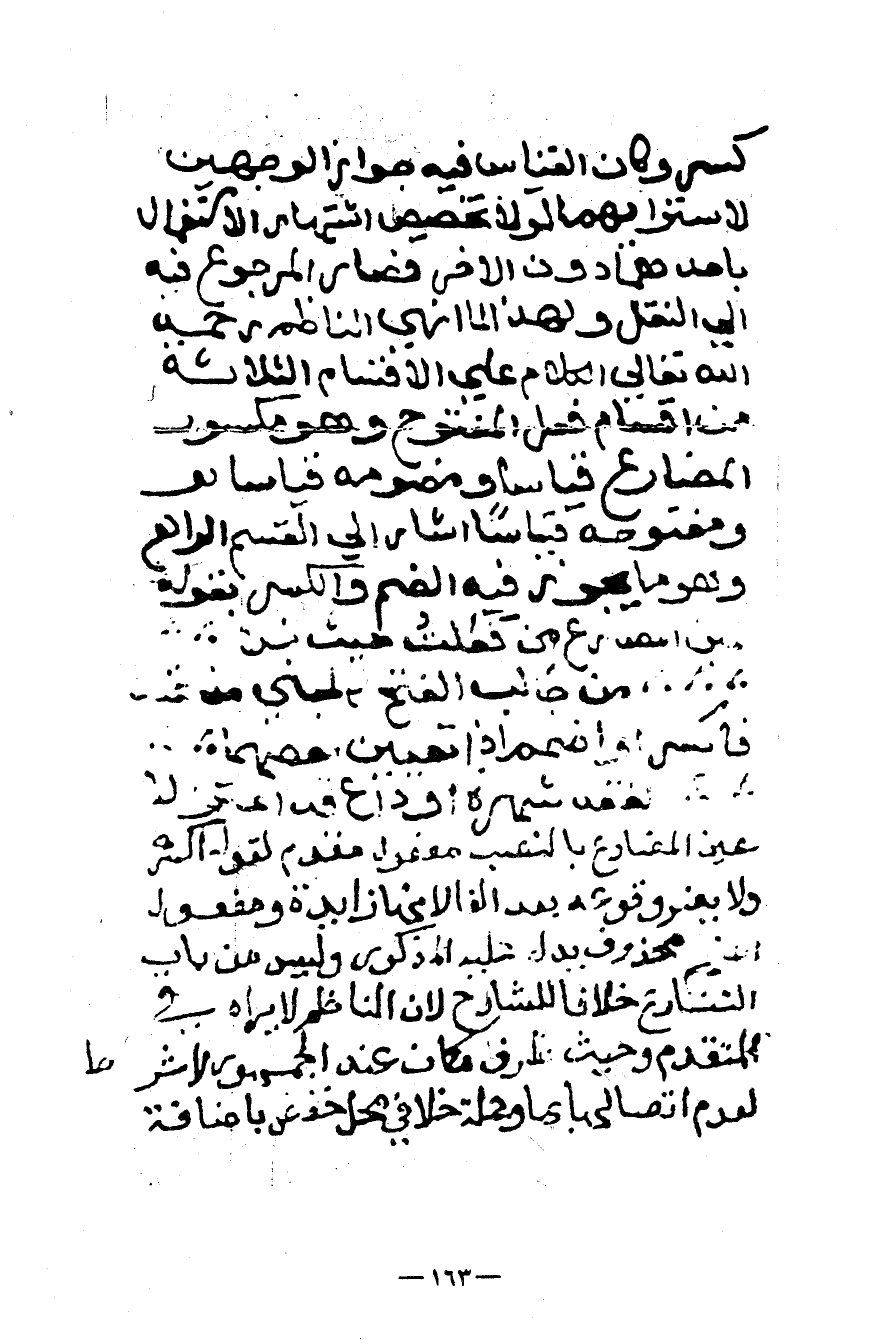 كسر وكان القياس فيه جواز الوجهين
لاستوائهما لولا تخصيص اشتهار الاكتفا
باحدهما دون الاخر فصار المرجوع فيه
الي النقل ولهذا لما انهي الناظم رحمه
الله تعالي الكلام علي الاقسام الثلاثة
من اقسام فعل المفتوح وهو مكسور
المضارع قياسا ومضمومه قياسا
ومفتوحه قياسا اشار الي القسم الرابع
وهو ما يجوز فيه الضم والكسر بقوله
المضارع من فعلت حيث
من جالب الفتح كالمبني من
فاكسر او اضمم اذا تعيين بعضهما
لفقد شهرة او داع قد اعتزلا
عين المضارع بالنصب مفعول مقدم لقوله اكسر
ولا يضر وقوعه بعد الفا لانها زايدة ومفعول
محذوف يدل عليه المذكور وليس من باب
التنازع خلافا للشارح لان الناظم لا يراه في
المتقدم وحيث ظرف مكان عند الجمهور لا شر ط
لعدم اتصالها بما وجملة خلا في محل خفض باضافة
— ١٦٣ —